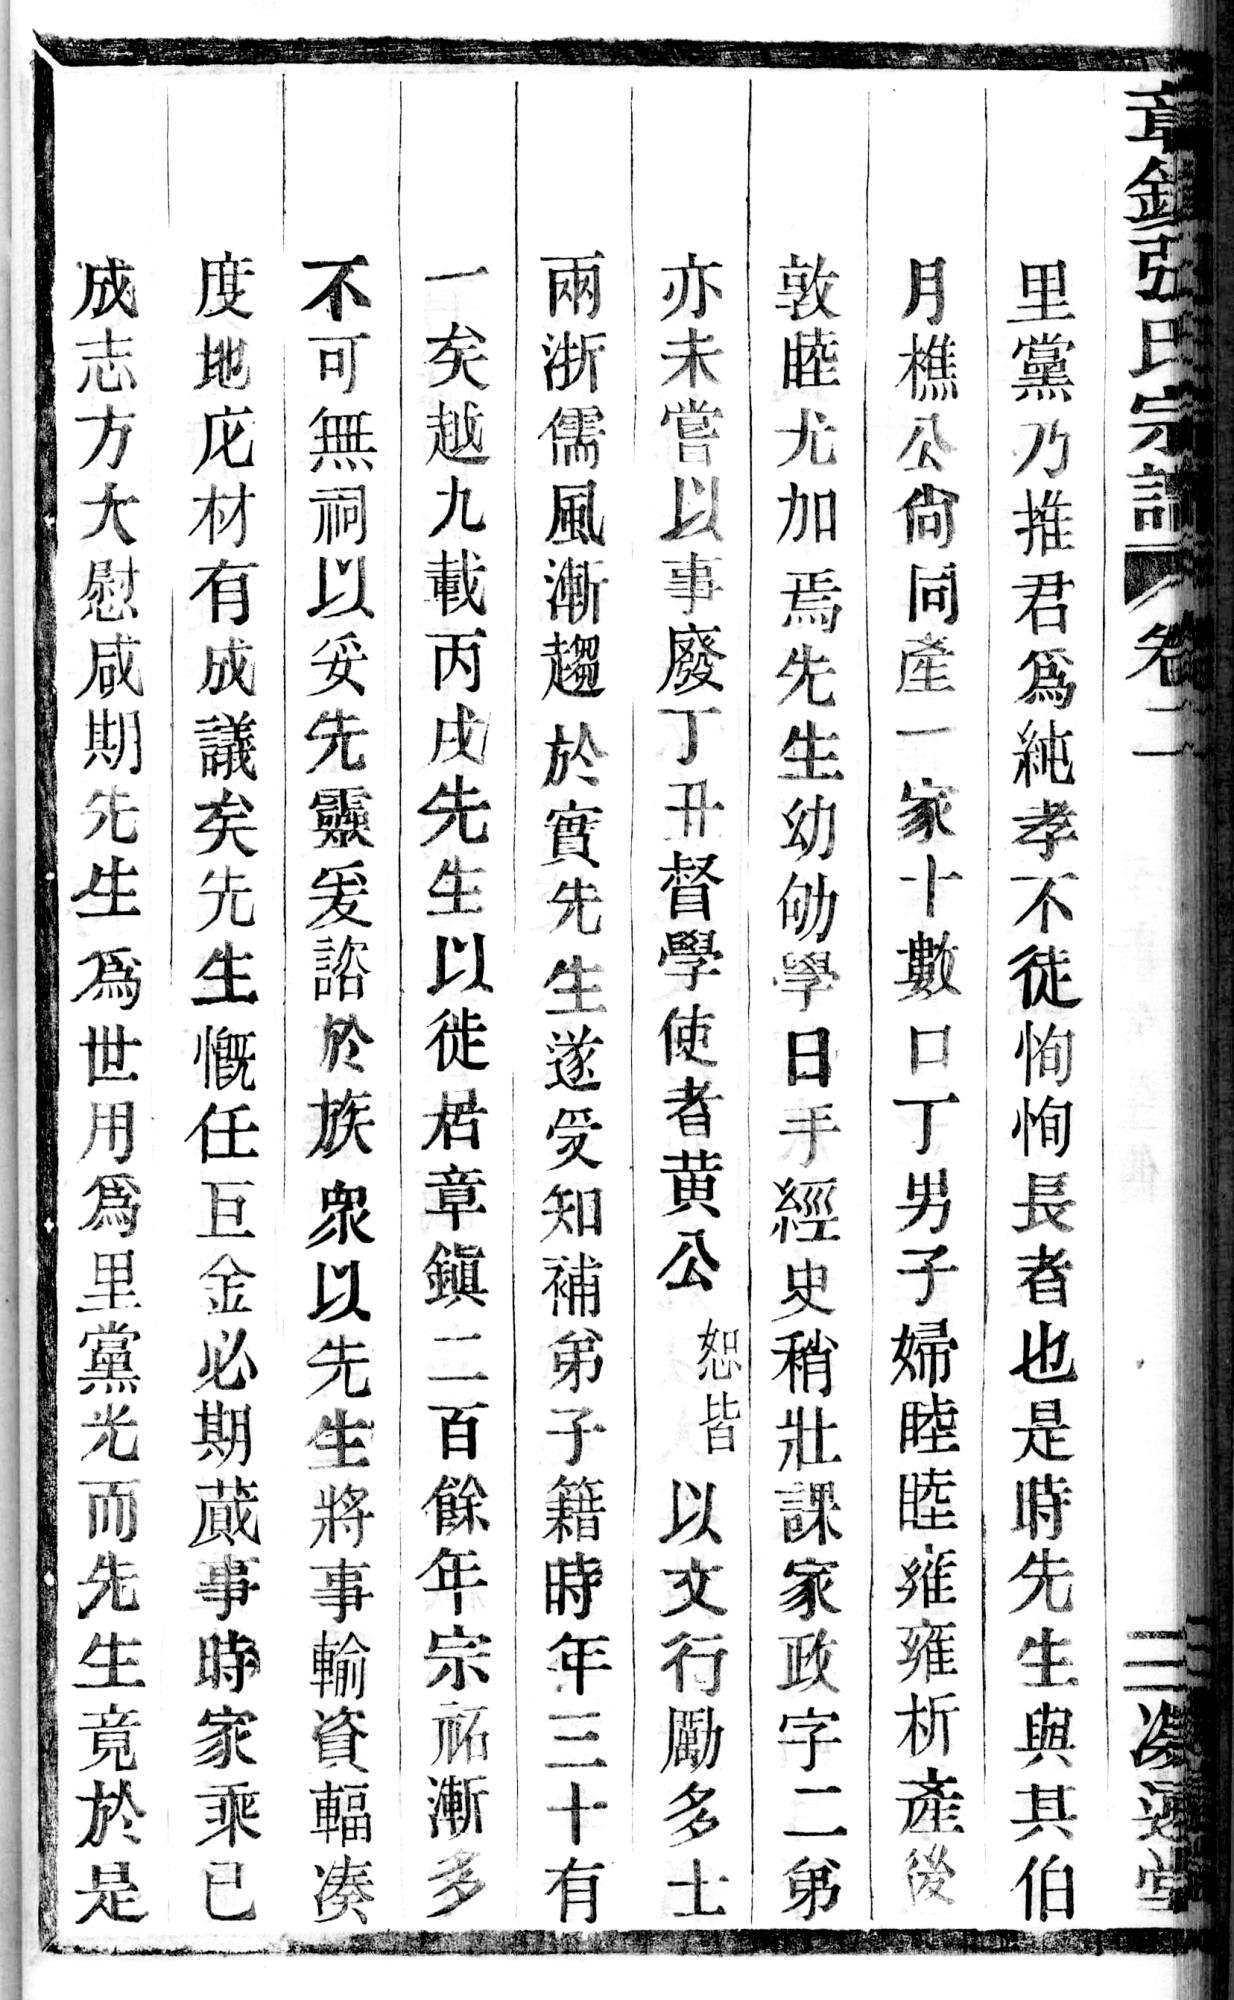 章鎮張氏宗譜 卷二
里黨乃推君爲純孝不徒恂恂長者也是時先生與其伯
月樵公尙同產一家十數口丁男子婦睦睦雍雍析產後
敦睦尤加焉先生幼劬學日手經史稍壯課家政字二弟
亦未嘗以事廢丁丑督學使者黄公恕皆以文行勵多士
兩浙儒風漸趨於實先生遂受知補弟子籍時年三十有
一矣越九載丙戌先生以徙居章鎭二百餘年宗祏漸多
不可無祠以妥先靈爰諮於族衆以先生將事輸資輻凑
度地庀材有成議矣先生慨任巨金必期蕆事時家乘已
成志方大慰咸期先生爲世用爲里黨光而先生竟於是